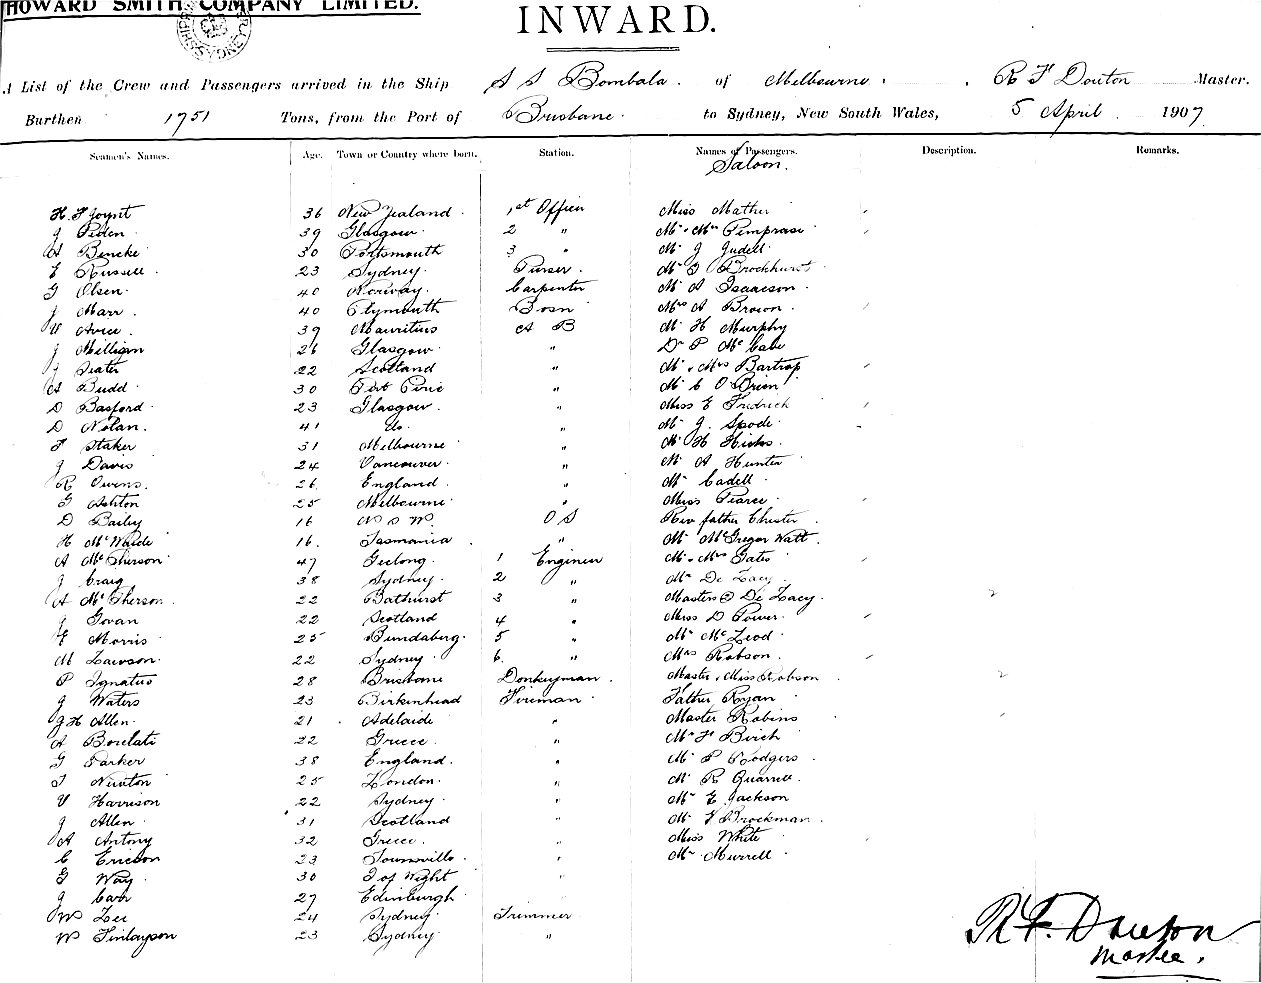 HOWARD SMITH COMPANY LIMITED.
INWARD.
A List of the Crew and Passengers arrived in the Ship S S Bombala. of Melbourne. R F Douton Master.
Burthen 1751 Tons, from the Port of Brisbane. to Sydney, New South Wales, 5 April 1907
Seamen's Names. Age. Town or Country where born. Station. Names of Passengers. Description. Remarks.
Saloon.
H. F Joynt 36 New Zealand. 1st Officer Miss Mather
J Peden 39 Glasgow. 2 " Mr. Mrs Pemprase
A Bencke 30 Portsmouth 3 " Mr J Judell
E Russell 23 Sydney. Purser. Mr T Brockhurst
G Olsen. 40 Norway. Carpenter Mr A Isaacson
J Marr. 40 Plymouth Bosn Mrs A Brown.
V Avice. 39 Mauritius A B Mr H Murphy
J Milligan 26 Glasgow. " Dr P McCabe
J Seater 22 Scotland " Mr. Mrs Bartrop
A Budd. 30 Port Pirie " Mr C O'Brien
D Basford. 23 Glasgow. " Miss E Fredrich
D Nolan. 41 Do. " Mr J. Spode.
F Staker 31 Melbourne " Mr H Hicks
J Davis 24 Vancouver. " Mr A Hunter
R Owens. 26 England. " Mr Cadell.
G Ashton 25 Melbourne " Miss Pearce
D Baily 16 N S W. O S Rev father Chester
H McWade 16. Tasmania. " Mr McGregor Watt.
A McPherson 47 Geelong. 1 Engineer Mr. Mrs Gates
J Craig 38 Sydney. 2 " Mrs De Lacy
A McPherson. 22 Bathurst 3 " Masters 2 De Lacy.
J Govan 22 Scotland 4 " Miss D Power.
F Morris 25 Bundaberg. 5 " Mr McLeod
M Lawson. 22 Sydney. 6. " Mrs Robson.
P Ignatius 28 Brisbane Donkeyman. Master. Miss Robson
J Waters 23 Birkinhead Fireman. Father Ryan
J H Allen. 21 Adelaide " Master Robins
A Borelati 22 Greece. " Mr F Birch
G Parker 38 England. " Mr P Rodgers
T Newton 25 London. " Mr R Quarrell
V Harrison 22 Sydney. " Mr E Jackson
J Allen. 31 Scotland " Mr V Brockman.
A Antony 32 Greece. " Miss White
C Ericson 23 Townsville. " Mr Murrell
G Way 30 I of Wight "
J Carr 27 Edinburgh "
W Lee 24 Sydney. Trimmer
W Finlayson 23 Sydney "
R. F. Douton
Master.